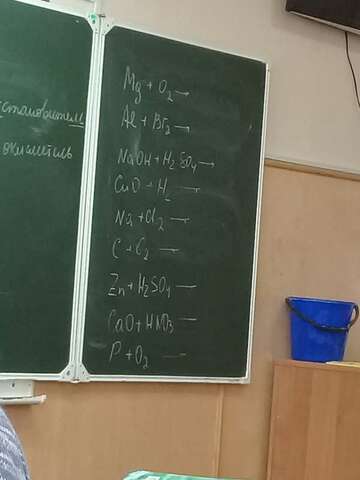 становитель
окислитель
Mg + O₂ →
Al + Br₂ →
NaOH + H₂SO₄ →
CuO + H₂ →
Na + Cl₂ →
C + O₂ →
Zn + H₂SO₄ →
CaO + HNO₃ →
P + O₂ →